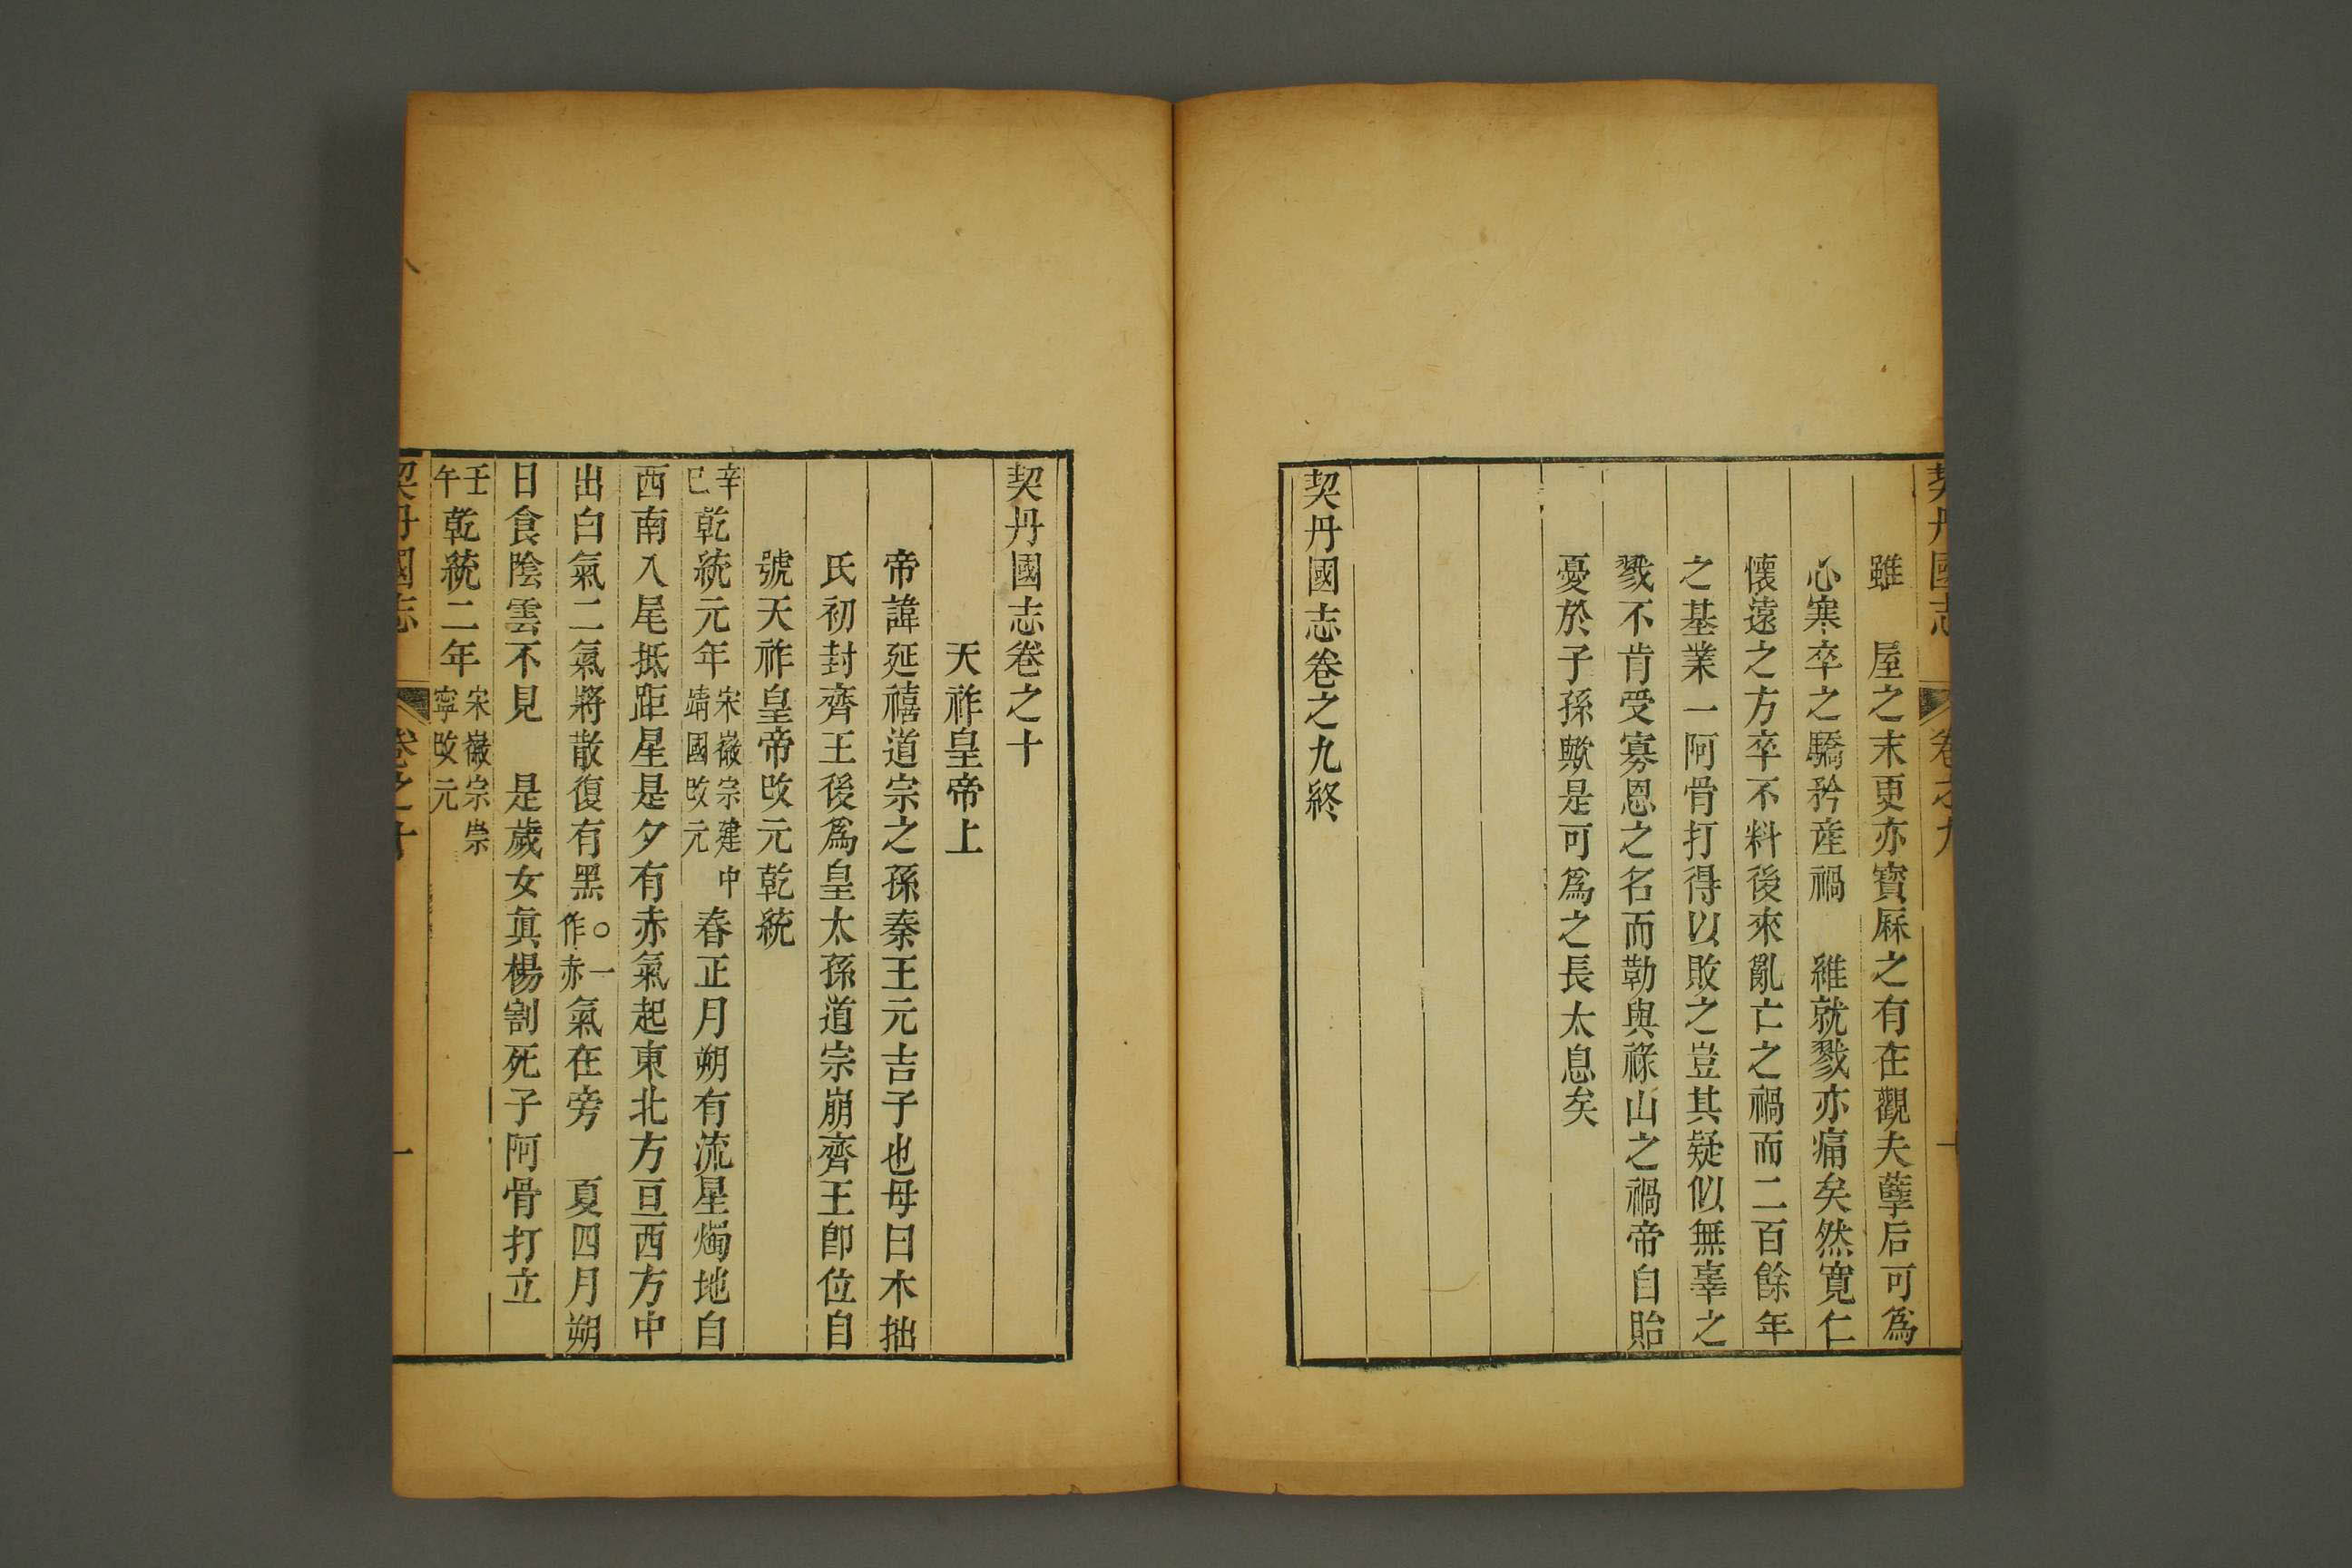 雖　屋之末更亦寳厤之有在觀夫孽后可爲
心寒卒之驕矜産禍　維就戮亦痛矣然寛仁
懐遠之方卒不料後來亂亡之禍而二百餘年
之基業一阿骨打得以敗之豈其疑似無辜之
戮不肯受寡恩之名而勒與祿山之禍帝自貽
憂於子孫歟是可爲之長太息矣
契丹國志卷之九終
契丹國志卷之十
天祚皇帝上
帝諱延禧道宗之孫秦王元吉子也母曰木拙
氏初封齊王後爲皇太孫道宗崩齊王卽位自
號天祚皇帝改元乾統
辛巳乾統元年宋徽宗建中靖國改元春正月朔有流星燭地自
西南入尾抵距星是夕有赤氣起東北方亘西方中
出白氣二氣將散復有黑○一作赤氣在旁　夏四月朔
日食陰雲不見　是歲女眞楊割死子阿骨打立
壬午乾統二年宋徽宗崇寧改元
契丹國志　卷之十　一